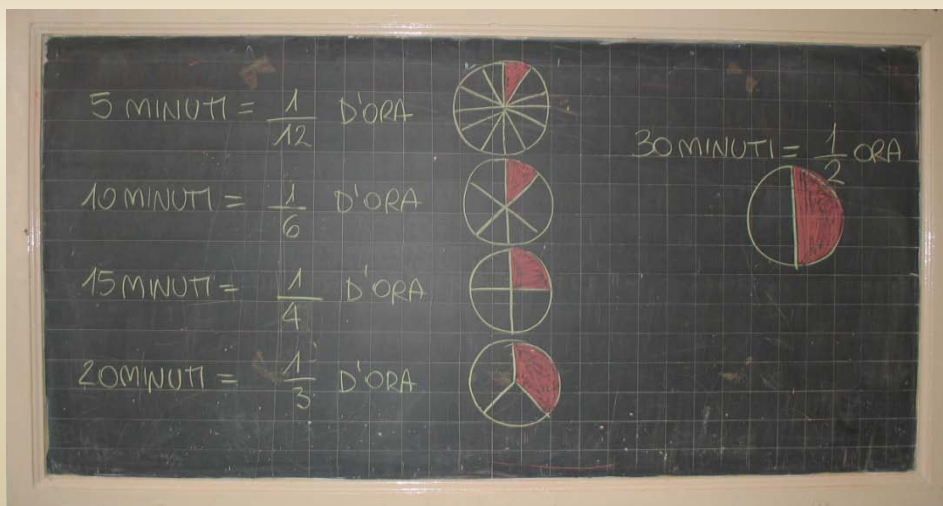 5 MINUTI = 1/12 D'ORA
10 MINUTI = 1/6 D'ORA
15 MINUTI = 1/4 D'ORA
20 MINUTI = 1/3 D'ORA
30 MINUTI = 1/2 ORA